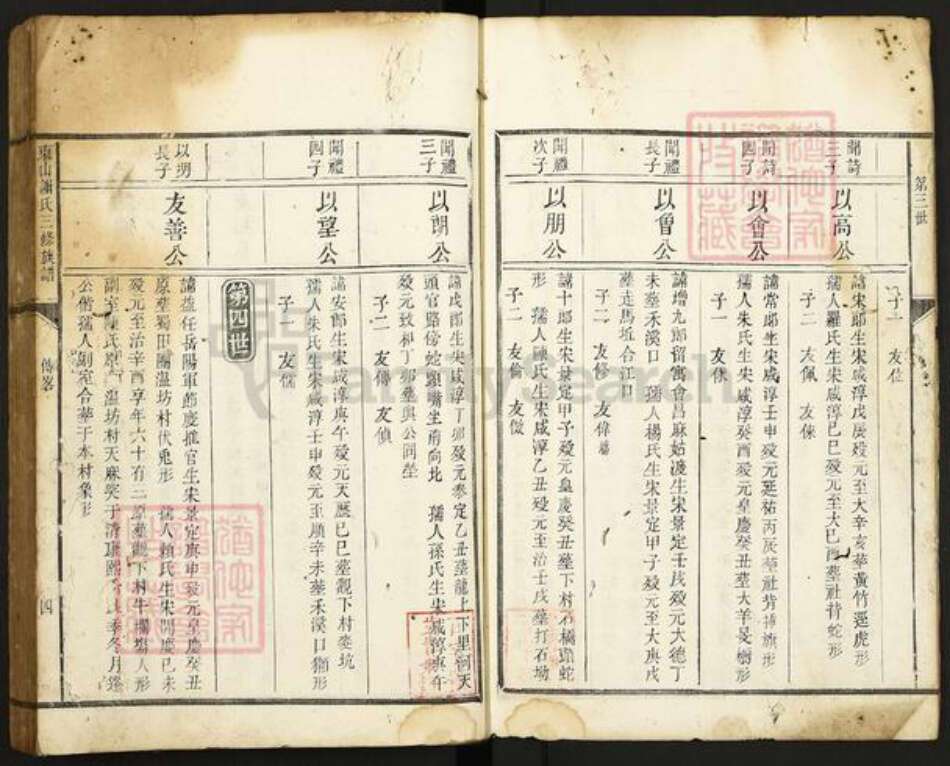 第三世
聞詩三子
以高公
諱宋郎生宋咸淳戊辰歿元至大辛亥葬黃竹逕虎形
孺人羅氏生宋咸淳己巳歿元至大己酉墓社背蛇形
子二 友佩 友俫
子一 友位
聞詩四子
以會公
諱常郎生宋咸淳壬申歿元延祐丙辰葬社背掛旗形
孺人朱氏生宋咸淳癸酉歿元皇慶癸丑墓大羊
子一 友俅
聞禮長子
以魯公
諱增九郎留寓會昌麻姑渡生宋景定壬戌歿元大德丁
未墓禾溪口 孺人楊氏生宋景定甲子歿元至大庚戌
墓走馬坵合江口
子二 友修 友偉
聞禮次子
以朋公
諱十郎生宋景定甲子歿元皇慶癸丑墓下村石橋頭蛇
形 孺人陳氏生宋咸淳乙丑歿元至治壬戌墓打石坳
子二 友倫 友傚
聞禮三子
以朗公
諱戍郎生宋咸淳丁卯歿元泰定乙丑墓龍上下里洞天
頭官路傍蛇頭嘴坐南向北 孺人孫氏生宋咸淳庚午
歿元致和丁卯墓與公同塋
子二 友傳 友偵
聞禮四子
以望公
諱安郎生宋咸淳庚午歿元天歷己巳墓觀下村
孺人朱氏生宋咸淳壬申歿元至順辛未墓禾溪口獅形
子一 友儒
第四世
以朋長子
友善公
諱益任岳陽軍節度推官生宋景定庚申歿元皇慶癸丑
原墓蜀田隔温坊村伏兎形 孺人賴氏生宋開慶己未
歿元至治辛酉享年六十有二原墓觀下村牛欄塘人形
副室陳氏原墓温坊村天麻突于清康熙季冬月遷
公偕孺人副室合葬于本村象形
東山蕭氏三修族譜
四
FamilySearch